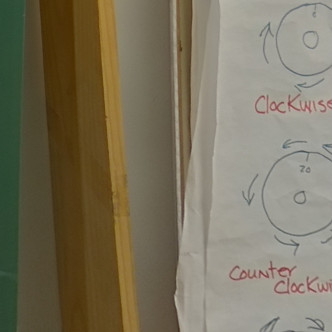 Clockwise
20
Counter
Clockwi